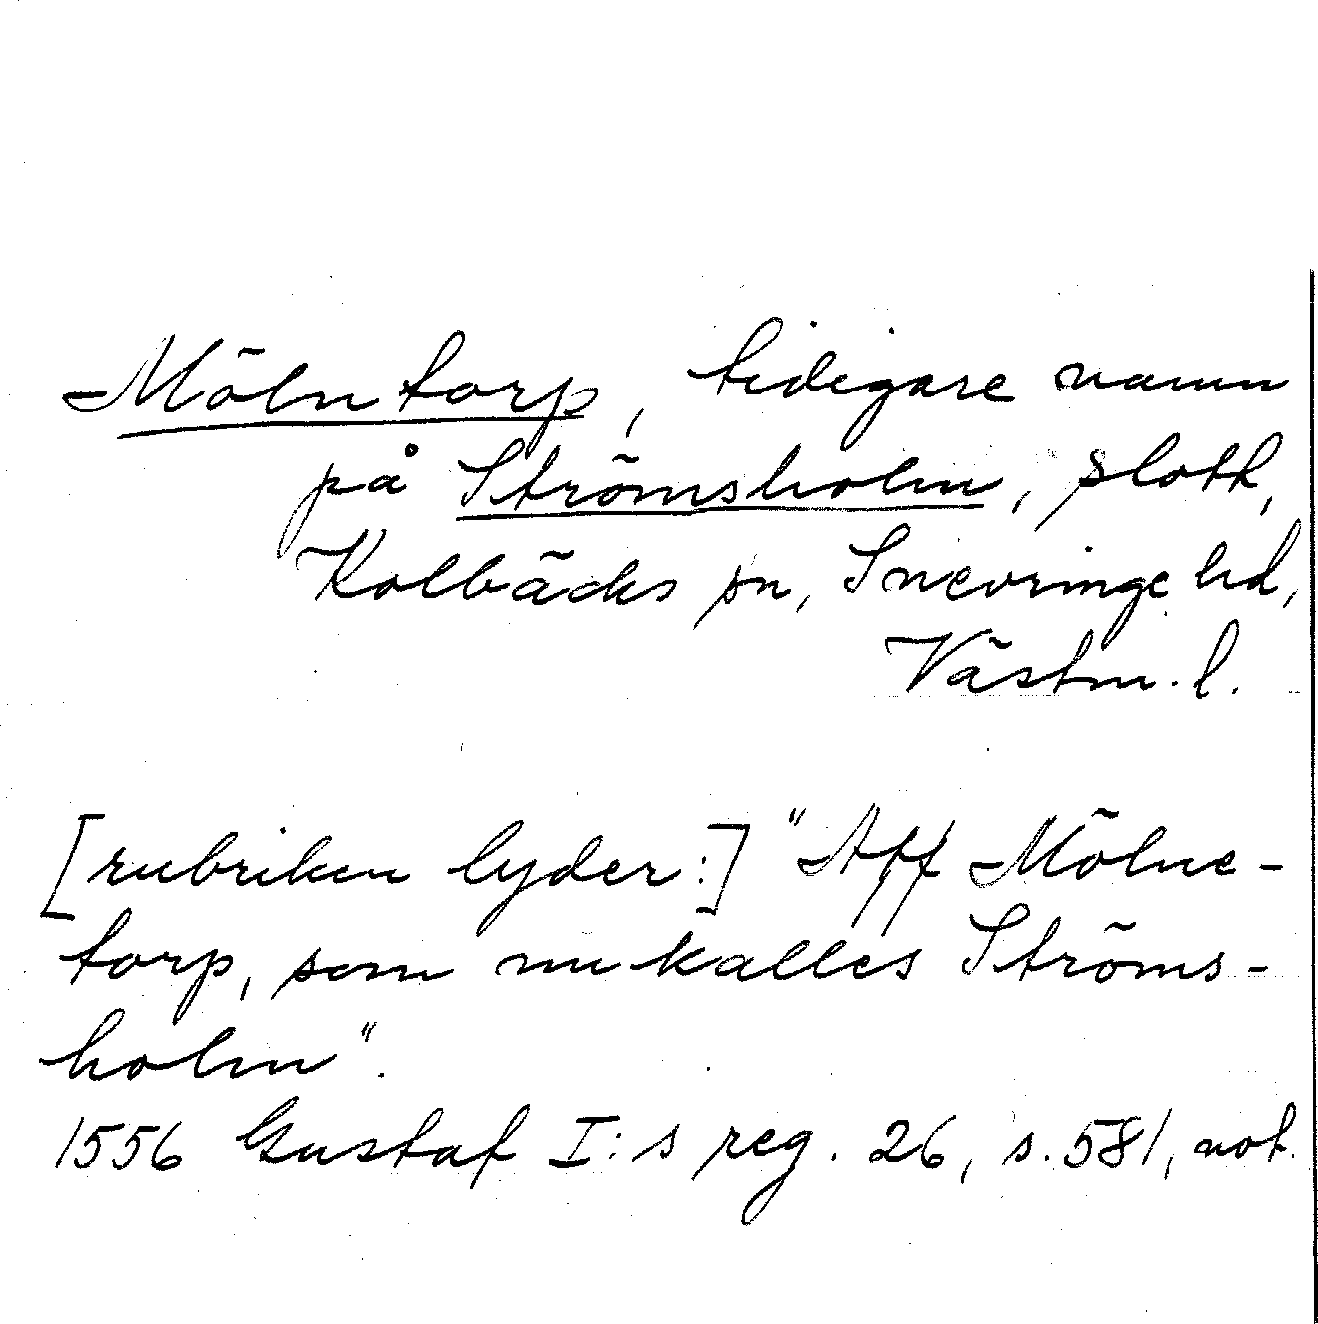 Mölntorp, tidigare namn
på Strömsholm, slott,
Kolbäcks sn, Snevringe hd,
Västm. l.
[rubriken lyder:] "Aff Mölne-
torp, som nu kalles Ströms-
holm".
1556 Gustaf I:s reg. 26, s. 581, not.